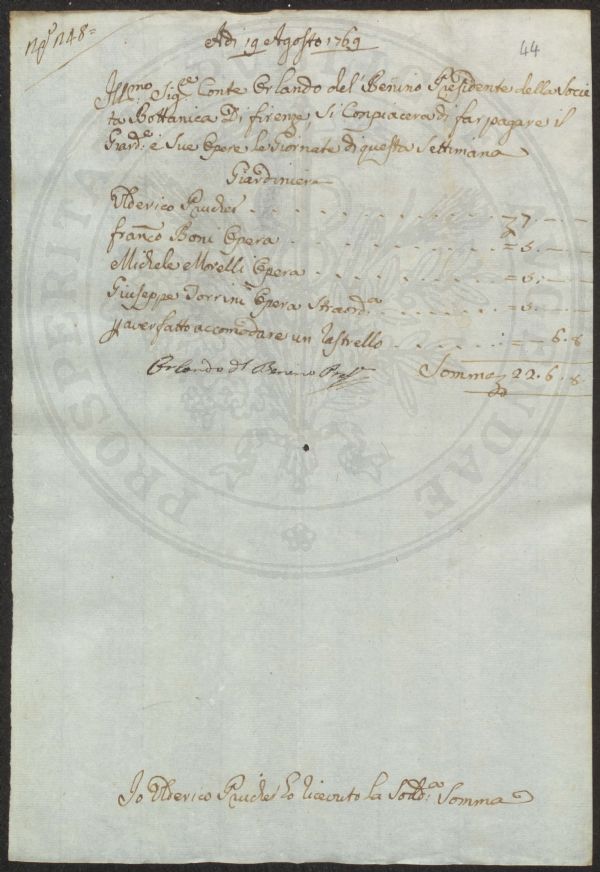 N.º 1248=
Adi 19 Agosto 1769
44
Ill.mo Sig.re Conte Orlando del Benino Presidente della Socie
ta Bottanica Di firenze, Si Conpiacera di far pagare il
Giard.e e Sue Opere le Giornate di questa Settimana
Giardiniere
Ulderico 7. —
fran.co Boni Opera = 5. —
Michele Morelli Opera = 5. —
Giuseppe Torrini Opera Straord.a = 5. —
p aver fatto accomodare un rastrello = — 6. 8
Orlando d.l Benino Pres.e
Somma 22. 6. 8.
Io Ulderico ho ricevuto la Sodd.a Somma
PROSPERITATI PUBLICAE AUGENDAE